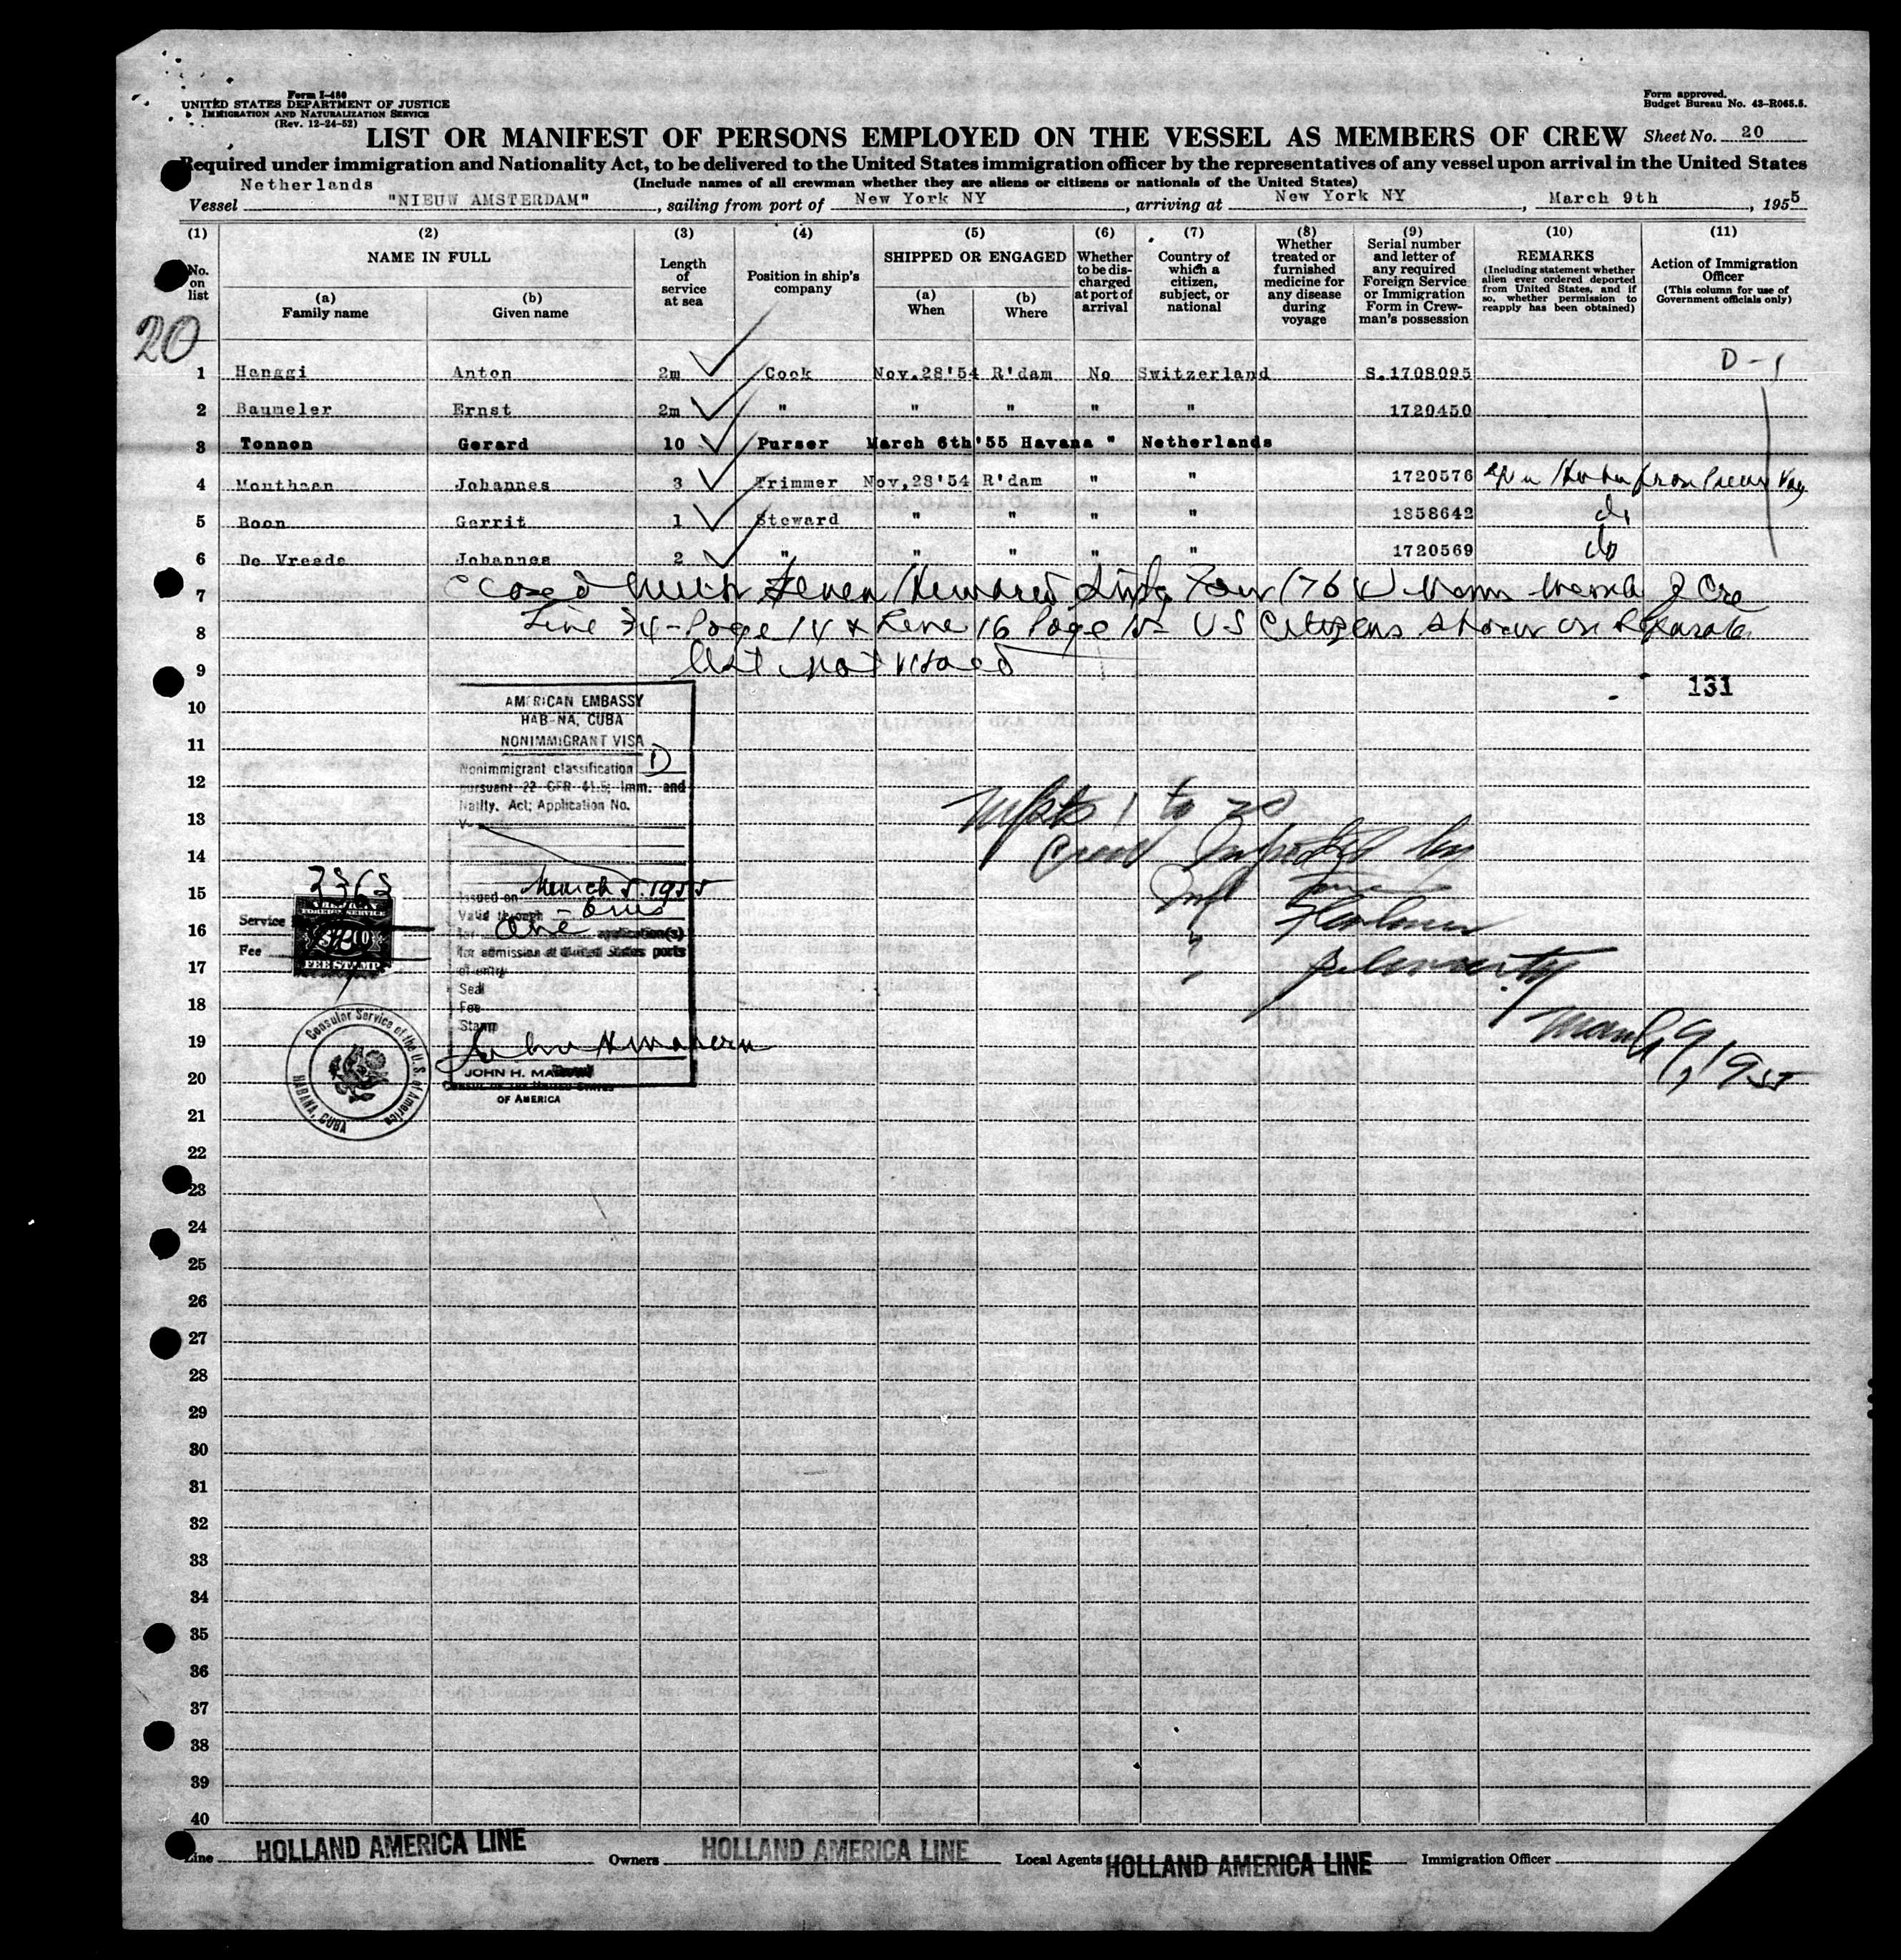 Form I-480
UNITED STATES DEPARTMENT OF JUSTICE
IMMIGRATION AND NATURALIZATION SERVICE
(Rev. 12-24-52)
Form approved.
Budget Bureau No. 43-R065.5.
LIST OR MANIFEST OF PERSONS EMPLOYED ON THE VESSEL AS MEMBERS OF CREW
Sheet No. 20
Required under immigration and Nationality Act, to be delivered to the United States immigration officer by the representatives of any vessel upon arrival in the United States
(Include names of all crewman whether they are aliens or citizens or nationals of the United States)
Netherlands
Vessel "NIEUW AMSTERDAM", sailing from port of New York NY, arriving at New York NY, March 9th, 1955
(1) (2) (3) (4) (5) (6) (7) (8) (9) (10) (11)
No. on list
NAME IN FULL
(a) Family name
(b) Given name
Length of service at sea
Position in ship's company
SHIPPED OR ENGAGED
(a) When
(b) Where
Whether to be discharged at port of arrival
Country of which a citizen, subject, or national
Whether treated or furnished medicine for any disease during voyage
Serial number and letter of any required Foreign Service or Immigration Form in Crewman's possession
REMARKS
(Including statement whether alien ever ordered deported from United States, and if so, whether permission to reapply has been obtained)
Action of Immigration Officer
(This column for use of Government officials only)
20
D-1
1 Hanggi Anton 2m Cook Nov.28'54 R'dam No Switzerland S.1708095
2 Baumeler Ernst 2m " " " " " 1720450
3 Tonnon Gerard 10 Purser March 6th'55 Havana " Netherlands
4 Monthaan Johannes 3 Trimmer Nov.28'54 R'dam " " 1720576
5 Roon Gerrit 1 Steward " " " " 1858642 do
6 De Vreede Johannes 2 " " " " " 1720569 do
7 Closed with Seven Hundred Sixty Four (764)
8 Line 34 - Page 14 & Line 16 Page US Citizens shown on Separate
9 list not visaed
131
10
11
12
13
14
15
16
17
18
19
20
21
22
23
24
25
26
27
28
29
30
31
32
33
34
35
36
37
38
39
40
AMERICAN EMBASSY
HABANA, CUBA
NONIMMIGRANT VISA
Nonimmigrant classification D
pursuant 22 CFR 41.5; Imm. and
Natlty. Act; Application No.
V-
Issued on March 5, 1955
Valid through
for one application(s)
for admission at United States ports
of entry
Seal
Fee
Stamp
JOHN H.
CONSUL OF THE UNITED STATES
OF AMERICA
Service
Fee
AMERICAN
FOREIGN SERVICE
FEE STAMP
Consular Service of the U.S. of America
HABANA, CUBA
1 to 20
Crew Inspected by
March 9, 1955
Line HOLLAND AMERICA LINE Owners HOLLAND AMERICA LINE Local Agents HOLLAND AMERICA LINE Immigration Officer